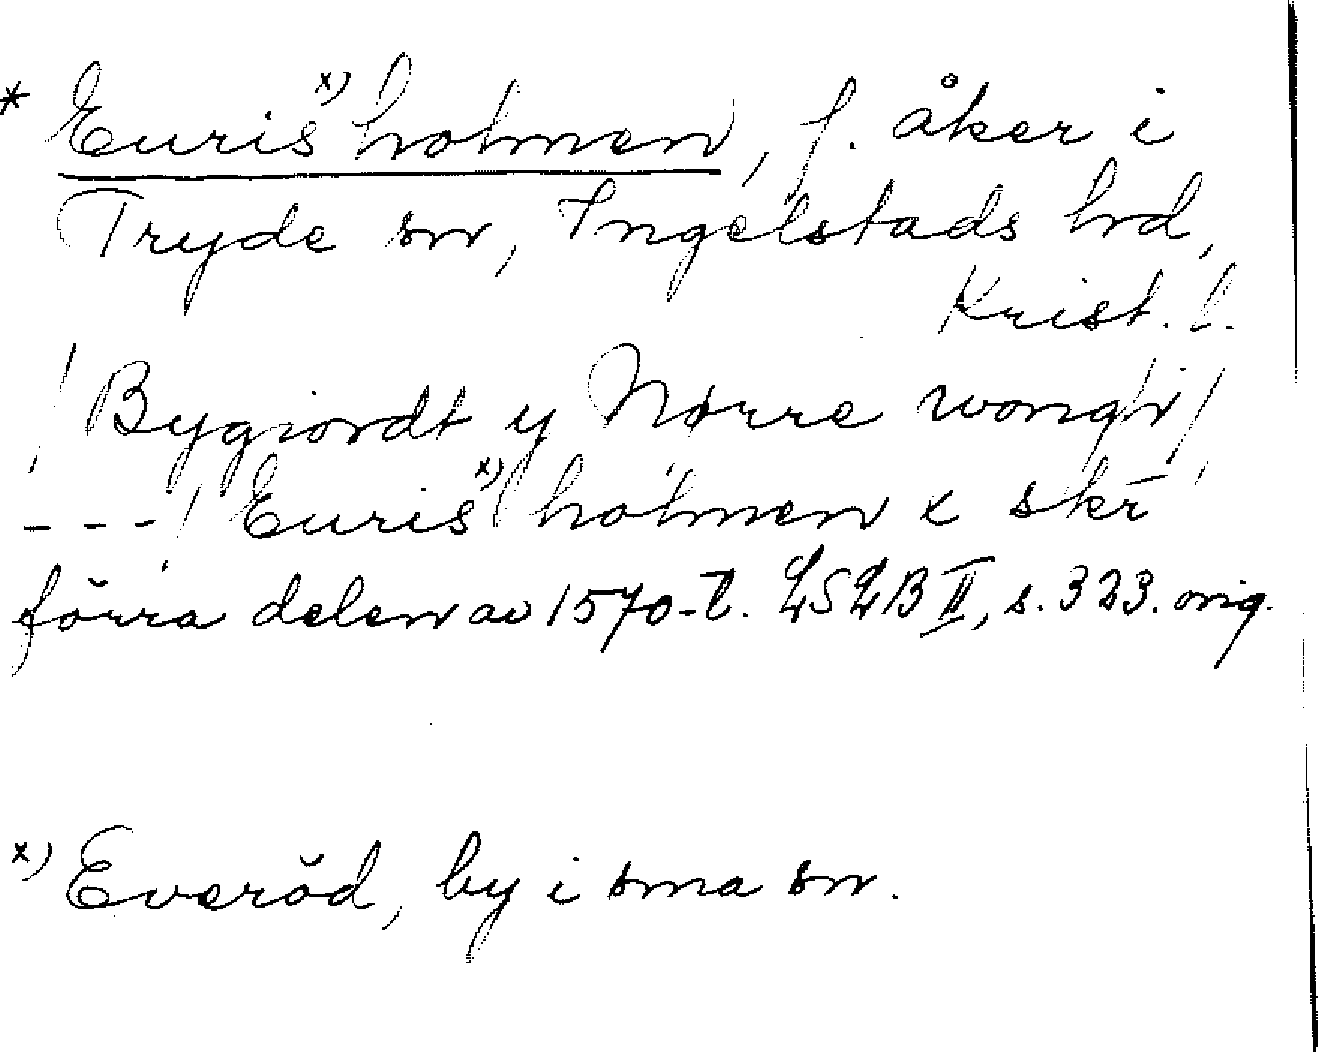 * Euris x) holmen, f. åker i
Tryde sn, Ingelstads hd,
Krist. l.
/Bygiordt y Nørre wongh/
---/ Euris x) holmen x skr
förra delen av 1570-t. LSLB II, s. 323. orig.
x) Everöd, by i sma sn.